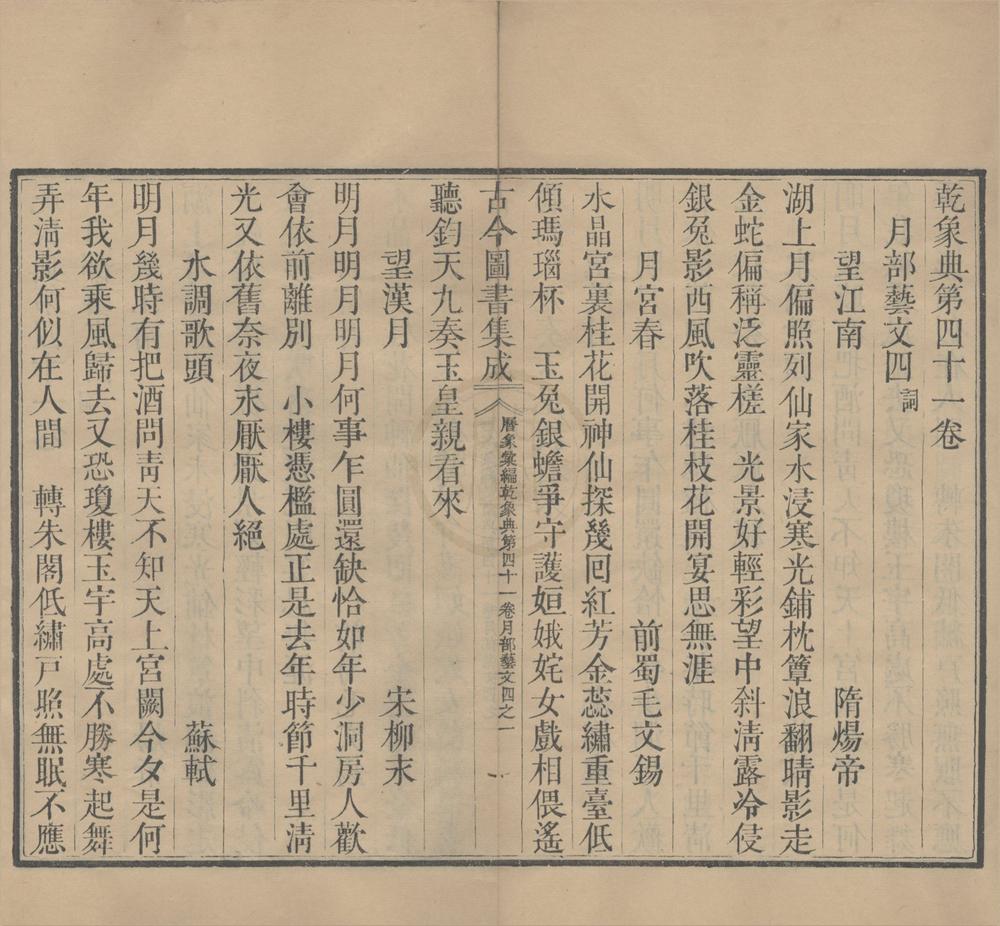 乾象典第四十一卷
月部藝文四詞
望江南　隋煬帝
湖上月偏照列仙家水浸寒光鋪枕簟浪翻晴影走
金蛇偏稱泛靈槎　光景好輕彩望中斜淸露冷侵
銀兔影西風吹落桂枝花開宴思無涯
月宮春　前蜀毛文錫
水晶宮裏桂花開神仙探幾回紅芳金蕊繡重臺低
傾瑪瑙杯　玉兔銀蟾爭守護姮娥姹女戲相偎遙
古今圖書集成　曆象彙編乾象典第四十一卷月部藝文四之一
聽鈞天九奏玉皇親看來
望漢月　宋柳永
明月明月明月何事乍圓還缺恰如年少洞房人歡
會依前離別　小樓憑檻處正是去年時節千里淸
光又依舊奈夜永厭厭人絕
水調歌頭　蘇軾
明月幾時有把酒問靑天不知天上宮闕今夕是何
年我欲乘風歸去又恐瓊樓玉宇高處不勝寒起舞
弄淸影何似在人間　轉朱閣低繡戸照無眠不應